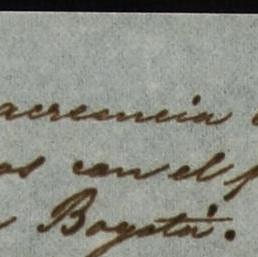 acreencia
os con el
Bogotá.